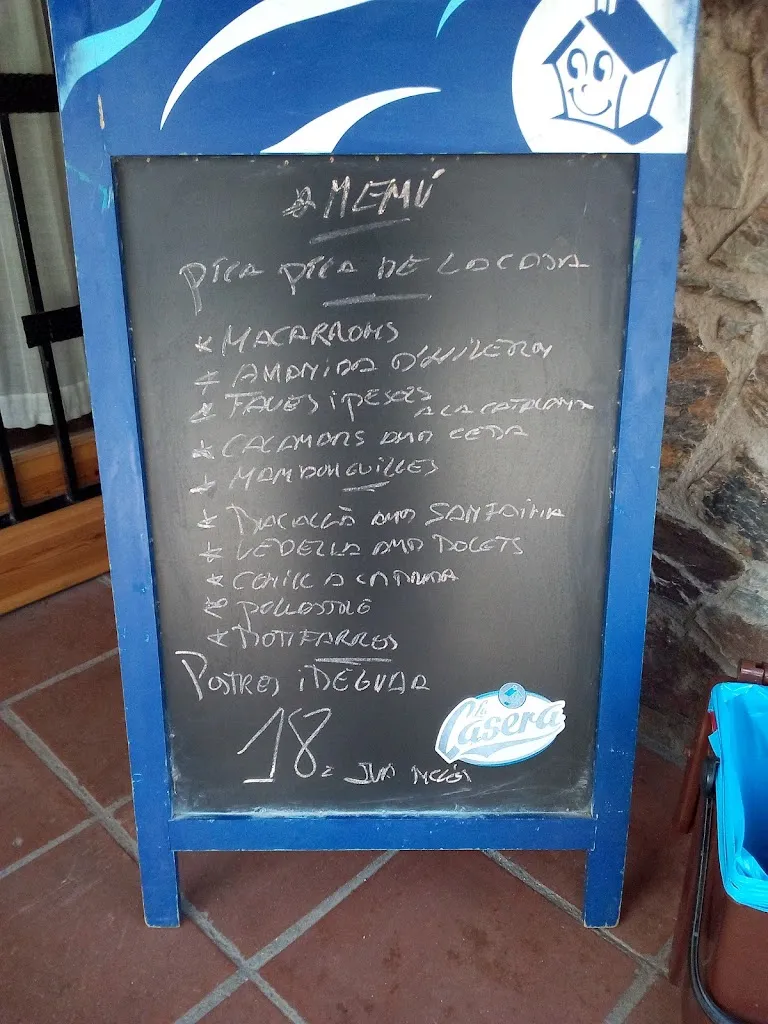 MENÚ
PICA PICA DE LA CASA
* MACARRONS
* AMANIDA D'HIVERN
* FAVES I PESOLS
A LA CATALANA
* CALAMARS AMB CEBA
* MANDONGUILLES
* BACALLÀ AMB SANFAINA
* VEDELLA AMB BOLETS
* CONILL A LA BRASA
* POLLASTRE
* BOTIFARRES
POSTRES I BEGUDA
18
La Casera